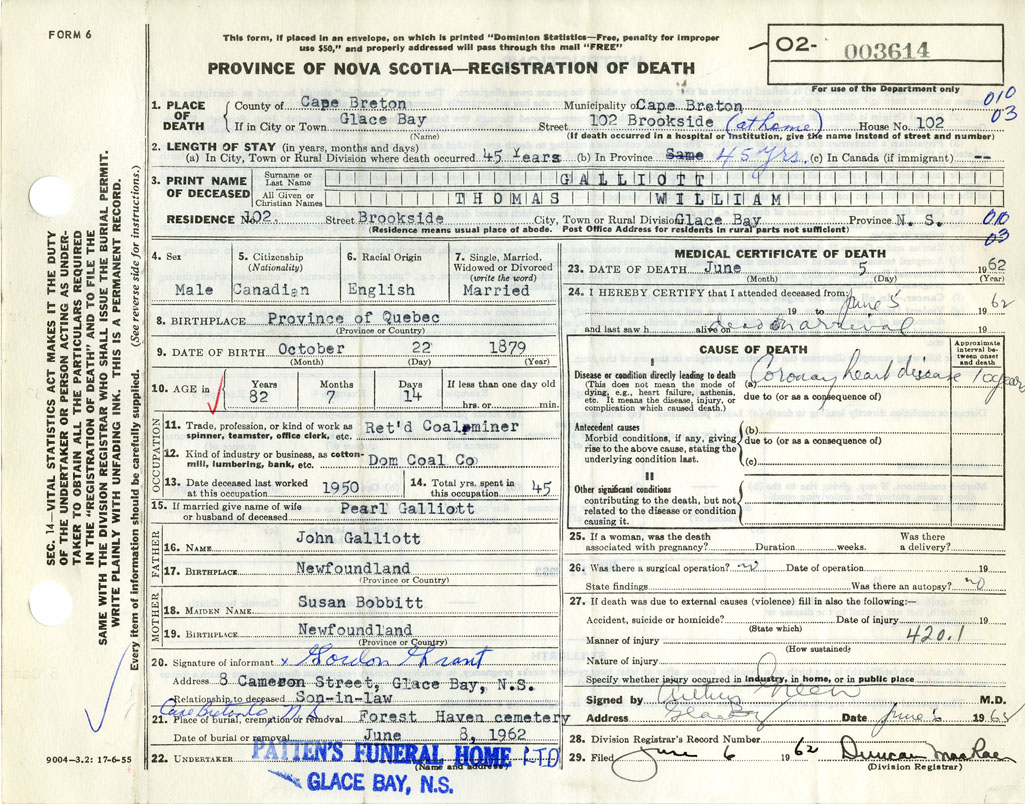 FORM 6
This form, if placed in an envelope, on which is printed "Dominion Statistics—Free, penalty for improper
use $50," and properly addressed will pass through the mail "FREE"
PROVINCE OF NOVA SCOTIA—REGISTRATION OF DEATH
02- 003614
For use of the Department only
010
03
1. PLACE OF DEATH
County of Cape Breton Municipality of Cape Breton
If in City or Town Glace Bay Street 102 Brookside (at home) House No. 102
(Name) (If death occurred in a hospital or institution, give the name instead of street and number)
2. LENGTH OF STAY (in years, months and days)
(a) In City, Town or Rural Division where death occurred 45 Years (b) In Province Same 45 Yrs. (c) In Canada (if immigrant) --
3. PRINT NAME OF DECEASED
Surname or Last Name GALLIOTT
All Given or Christian Names THOMAS WILLIAM
RESIDENCE No. 102. Street Brookside City, Town or Rural Division Glace Bay Province N. S.
010
03
(Residence means usual place of abode. Post Office Address for residents in rural parts not sufficient)
4. Sex
Male
5. Citizenship
(Nationality)
Canadian
6. Racial Origin
English
7. Single, Married, Widowed or Divorced
(write the word)
Married
8. BIRTHPLACE Province of Quebec
(Province or Country)
9. DATE OF BIRTH October 22 1879
(Month) (Day) (Year)
10. AGE in
Years Months Days If less than one day old
82 7 14 hrs. or min.
OCCUPATION
11. Trade, profession, or kind of work as
spinner, teamster, office clerk, etc. Ret'd Coalminer
12. Kind of industry or business, as cotton-
mill, lumbering, bank, etc. Dom Coal Co
13. Date deceased last worked
at this occupation 1950
14. Total yrs. spent in
this occupation 45
15. If married give name of wife
or husband of deceased Pearl Galliott
FATHER
16. NAME John Galliott
17. BIRTHPLACE Newfoundland
(Province or Country)
MOTHER
18. MAIDEN NAME Susan Bobbitt
19. BIRTHPLACE Newfoundland
(Province or Country)
20. Signature of informant x Gordon Grant
Address 8 Cameron Street, Glace Bay, N.S.
Relationship to deceased Son-in-law
Cape Breton Co N.S.
21. Place of burial, cremation or removal Forest Haven cemetery
Date of burial or removal June 8, 1962
22. UNDERTAKER PATTEN'S FUNERAL HOME LTD
(Name and address)
GLACE BAY, N.S.
9004—3.2: 17-6-55
MEDICAL CERTIFICATE OF DEATH
23. DATE OF DEATH June 5 1962
(Month) (Day) (Year)
24. I HEREBY CERTIFY that I attended deceased from
19 to June 5 1962
and last saw h alive on dead on arrival 19
CAUSE OF DEATH
Approximate interval between onset and death
I
Disease or condition directly leading to death
(This does not mean the mode of
dying, e.g., heart failure, asthenia,
etc. It means the disease, injury, or
complication which caused death.)
(a) Coronary heart disease 10 years
due to (or as a consequence of)
Antecedent causes
Morbid conditions, if any, giving
rise to the above cause, stating the
underlying condition last.
(b)
due to (or as a consequence of)
(c)
II
Other significant conditions
contributing to the death, but not
related to the disease or condition
causing it.
25. If a woman, was the death
associated with pregnancy? Duration weeks. Was there
a delivery?
26. Was there a surgical operation? no Date of operation 19
State findings Was there an autopsy? no
27. If death was due to external causes (violence) fill in also the following:—
Accident, suicide or homicide? Date of injury 19
(State which)
Manner of injury 420.1
(How sustained)
Nature of injury
Specify whether injury occurred in industry, in home, or in public place
Signed by Arthur Green M.D.
Address Glace Bay Date June 6 1962
28. Division Registrar's Record Number
29. Filed June 6 1962 Duncan MacRae
(Division Registrar)
SEC. 14—VITAL STATISTICS ACT MAKES IT THE DUTY
OF THE UNDERTAKER OR PERSON ACTING AS UNDER-
TAKER TO OBTAIN ALL THE PARTICULARS REQUIRED
IN THE "REGISTRATION OF DEATH" AND TO FILE THE
SAME WITH THE DIVISION REGISTRAR WHO SHALL ISSUE THE BURIAL PERMIT.
WRITE PLAINLY WITH UNFADING INK. THIS IS A PERMANENT RECORD.
Every item of information should be carefully supplied. (See reverse side for instructions.)